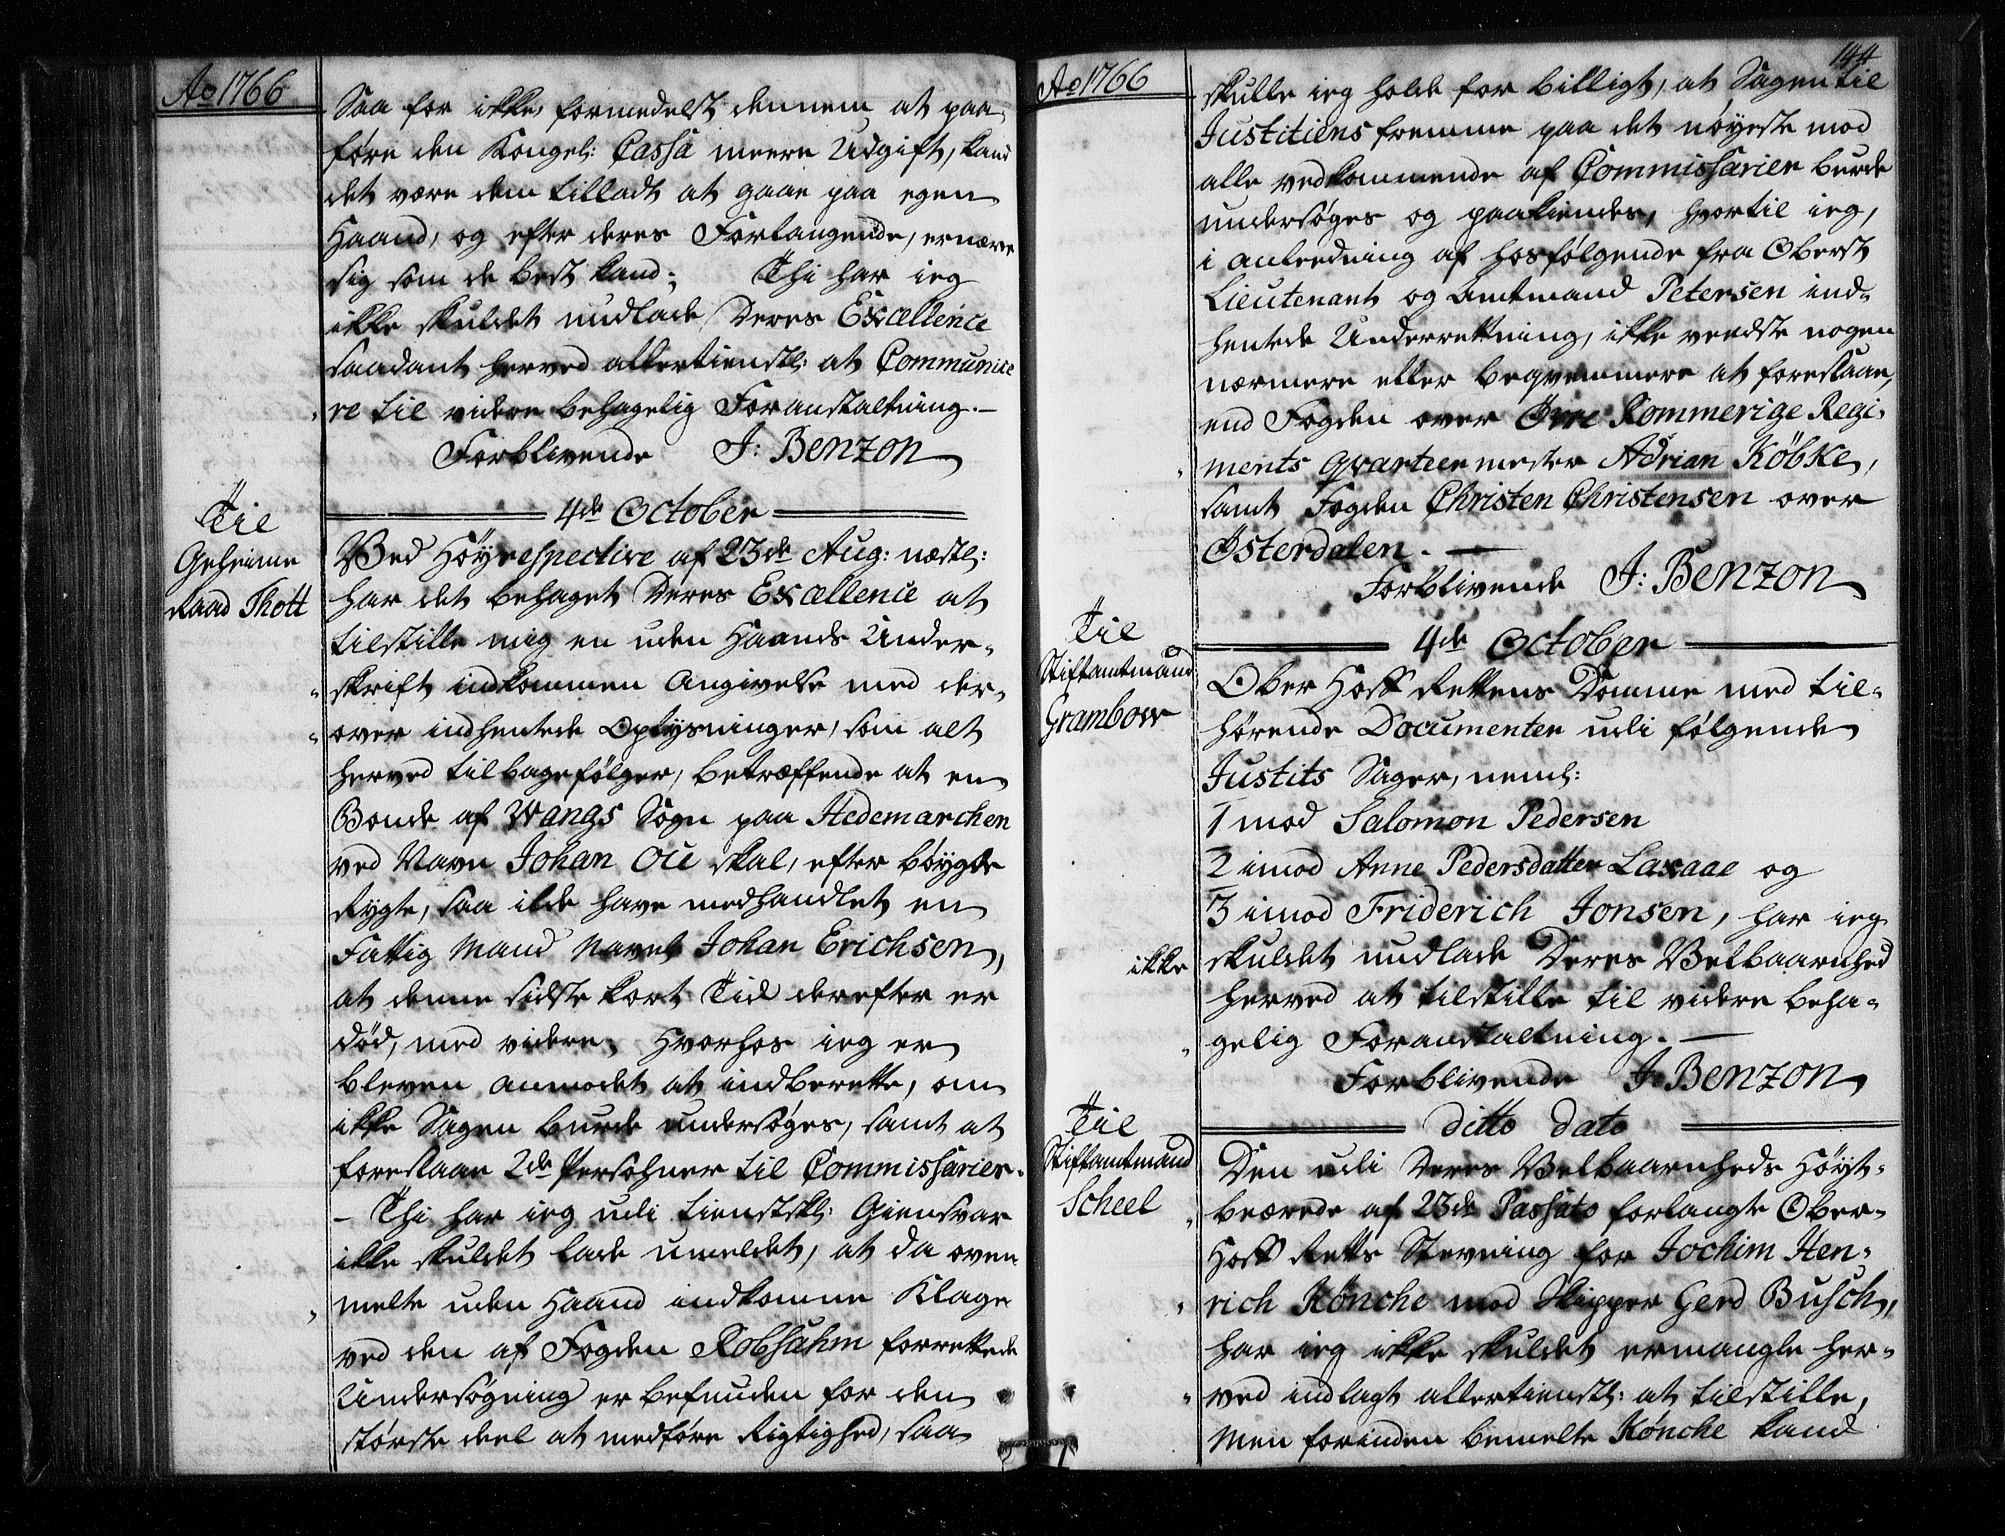 Ao 1766
Saa for ikke, formedelst dennem at paa-
føre den Kongel: Cassa meere Udgift, kand
det være dem tilladt at gaae paa egen
Haand, og efter deres Forlangende, ernære
sig som de best kand; Thi har ieg
ikke skuldet undlade, Deres Excellence
saadant herved allertienstl: at Communice
re til videre behagelig Foranstaltning.—
Forblivende J: Benzon
4de October
Til
Geheime
Raad Thott
Ved Høyrespective af 23de Aug: næstl:
har det behaget Deres Excellence at
tilstille mig en uden Haands Under-
skrift indkommen Angivelse med der-
over indhentede Oplysninger, som alt
herved tilbagefølger, betræffende at en
Bonde af Wangs Sogn paa Hedemarchen
ved Navn Johan Oii skal, efter bøygde
Rygte, saa ilde have medhandlet en
Fattig Mand Navnl Johan Erichsen,
at denne sidste kort Tid derefter er
død, med videre; Hvorhos ieg er
bleven anmodet at indberette, om
ikke Sagen burde undersøges, samt at
foreslaae 2de Persohner til Commissarier.
— Thi har ieg udi tienstskl: Giensvar
ikke skuldet lade umeldet, at da oven
melte uden Haand indkomne Klage
ved den af Fogden Robsahm forrettede
Undersøgning er befunden for den
største deel at medføre Rigtighed, saa
Ao 1766
144
skulle ieg holde for billigt, at Sagen til
Justitiens fremme paa det nøyeste mod
alle vedkommende af Commissarier burde
undersøges og paakiendes, hvortil ieg,
i anledning af hosfølgende fra Oberst
Lieutenant og Amtmand Petersen ind-
hentede Underrettning, ikke veedste nogen
nærmere eller beqvemmere at foreslaae,
end Fogden over Øvre Rommerige Regi-
ments qvarteermester Adrian Købke,
samt Fogden Christen Christensen over
Østerdalen.—
Forblivende J: Benzon
4de October
Til
Stiftamtmand
Grambow
Ober Hoff Rettens Domme med til-
hørende Documenter udi følgende
Justits Sager, neml:
1 mod Salomon Pedersen
2 imod Anne Pedersdatter Laxaae og
3 imod Friderich Jonsen, har ieg
ikke skuldet undlade Deres Velbaarnhed
herved at tilstille til videre beha-
gelig Foranstaltning.—
Forblivende J: Benzon
ditto dato
Til
Stiftamtmand
Scheel
Den udi Deres Velbaarnheds Høyst-
beærede af 23de Passato forlangte Ober-
Hoff Retts Stevning for Jochim Hen-
rich Kønche mod Skipper Gerd Busch,
har ieg ikke skuldet ermangle her-
ved indlagt allertienstl: at tilstille,
Men forinden bemelte Kønche kand